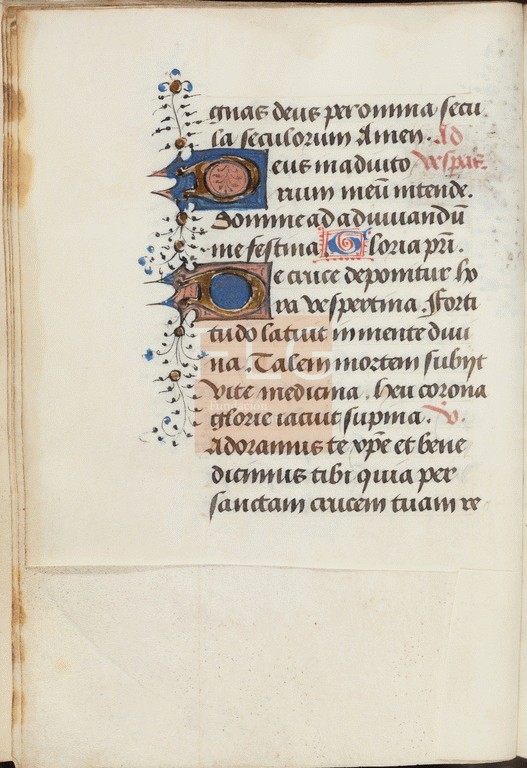 gnas deus per omnia secu
la seculorum Amen. Ad
Deus in adiuto vesp̃as.
rium meũ intende.
Domine ad adiuuandũ
me festina. Gloria pr̃i.
De cruce deponitur ho
ra vespertina. Forti
tudo latuit in mente diui
na. Talem mortem subijt
vite medicina. heu corona
glorie iacuit supina. v.
Adoramus te xp̃e et bene
dicimus tibi quia per
sanctam crucem tuam re
FLG
Fundación